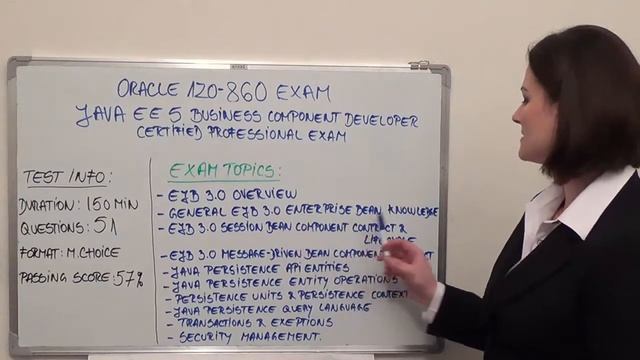 ORACLE 1Z0-860 EXAM
JAVA EE 5 BUSINESS COMPONENT DEVELOPER
CERTIFIED PROFESSIONAL EXAM
TEST INFO:
DURATION: 150 MIN
QUESTIONS: 51
FORMAT: M.CHOICE
PASSING SCORE: 57%
EXAM TOPICS:
- EJB 3.0 OVERVIEW
- GENERAL EJB 3.0 ENTERPRISE BEAN KNOWLEDGE
- EJB 3.0 SESSION BEAN COMPONENT CONTRACT &
LIFE CYCLE
- EJB 3.0 MESSAGE-DRIVEN BEAN COMPONENT
- JAVA PERSISTENCE API ENTITIES
- JAVA PERSISTENCE ENTITY OPERATIONS
- PERSISTENCE UNITS & PERSISTENCE CONTEXT
- JAVA PERSISTENCE QUERY LANGUAGE
- TRANSACTIONS & EXEPTIONS
- SECURITY MANAGEMENT.